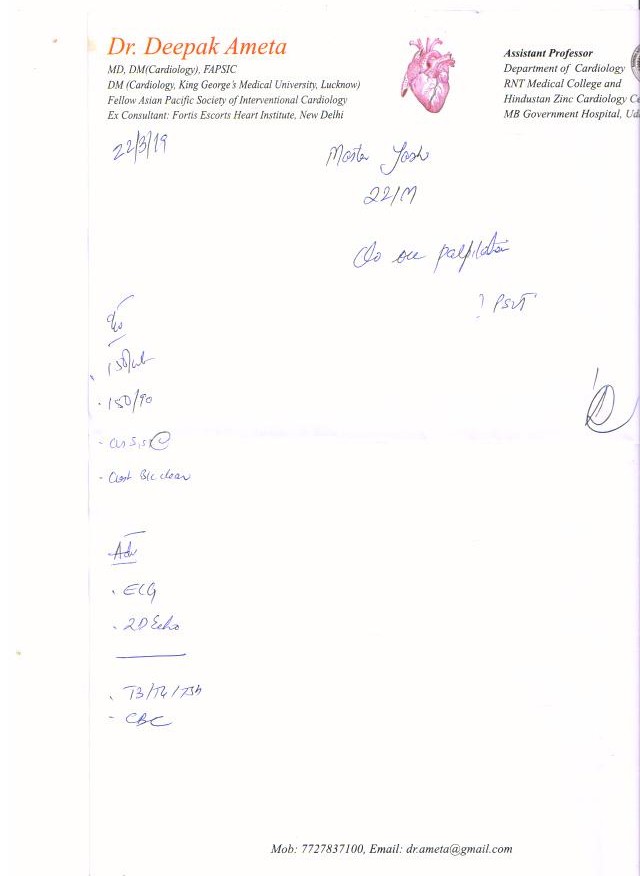 Dr. Deepak Ameta
MD, DM(Cardiology), FAPSIC
DM (Cardiology, King George's Medical University, Lucknow)
Fellow Asian Pacific Society of Interventional Cardiology
Ex Consultant: Fortis Escorts Heart Institute, New Delhi
Assistant Professor
Department of Cardiology
RNT Medical College and
Hindustan Zinc Cardiology Ce
MB Government Hospital, Uda
22/3/19
Master Yash
22/M
palpitation
? PSVT
- 150/90
- Chest B/L clear
Adv
. ECG
. 2D Echo
. T3/T4/TSH
- CBC
Mob: 7727837100, Email: dr.ameta@gmail.com